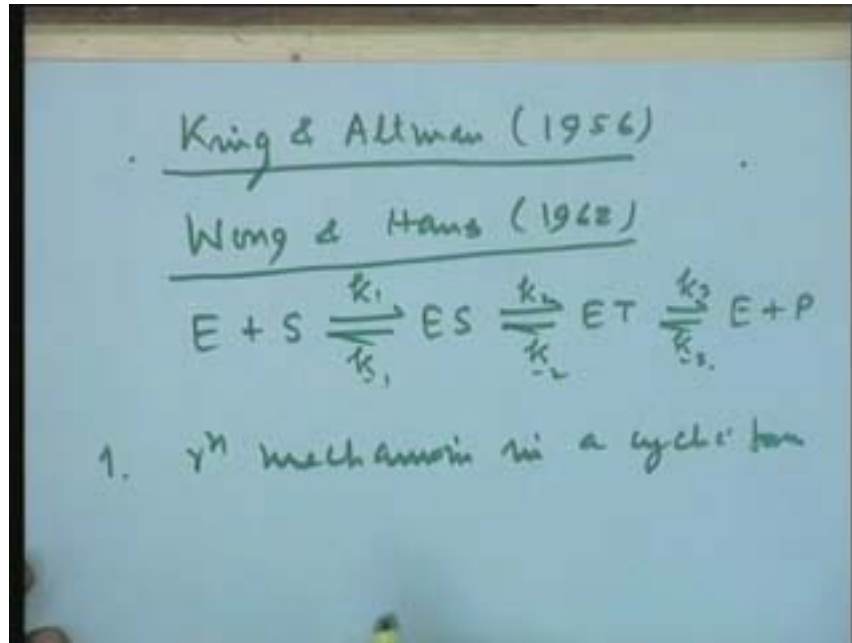 King & Altman (1956)
Wong & Hans (1962)
E + S ⇌ ES ⇌ ET ⇌ E + P
k₁ k₂ k₃
k₋₁ k₋₂ k₋₃
1. rⁿ mechanism in a cyclic form